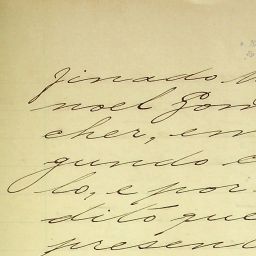 jinado M
noel Gon
cher, em
gundo c
lo, e por
dito que
present